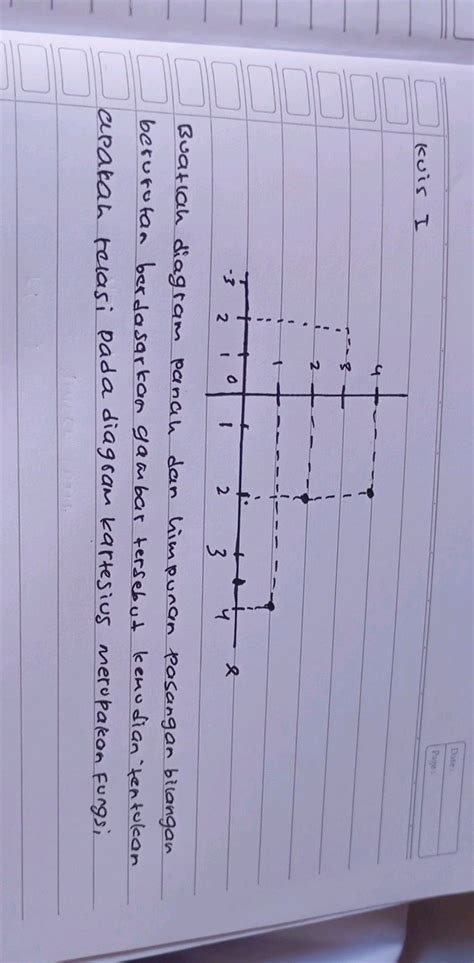 Date:
Page:
Kuis I
4
3
2
1
-3 2 1 0 1 2 3 4 x
Buatlah diagram panah dan himpunan pasangan bilangan
berurutan berdasarkan gambar tersebut kemudian tentukan
apakah relasi pada diagram kartesius merupakan fungsi